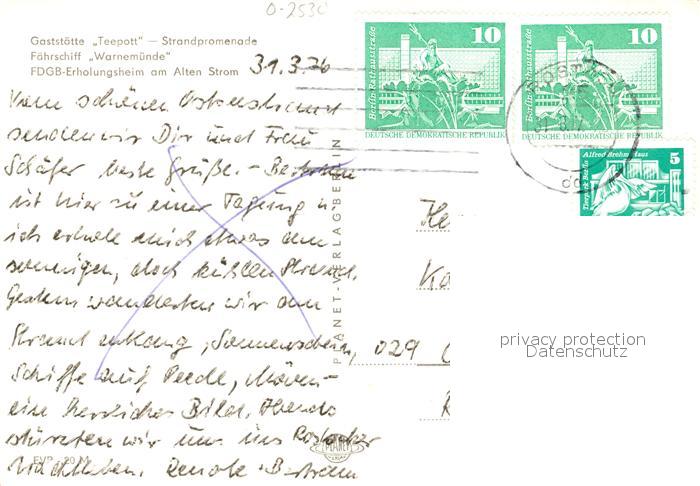 0-2530
Gaststätte „Teepott" — Strandpromenade
Fährschiff „Warnemünde"
FDGB-Erholungsheim am Alten Strom
31.3.76
Vom schönen Ostseestrand
senden wir Dir und Frau
Schäfer beste Grüße. - Bertram
ist hier zu einer Tagung u.
ich erhole mich etwas am
sonnigen, doch kühlen Strand.
Gestern wanderten wir am
Strand entlang, Sonnenschein,
Schiffe auf Reede, Möwen -
ein herrliches Bild. Abends
stürzten wir uns ins Rostocker
Nachtleben. Renate + Bertram
EVP 20 M
PLANET-VERLAG BERLIN
PLANET
VERLAG
10
Berlin, Rathausstraße
DEUTSCHE DEMOKRATISCHE REPUBLIK
10
Berlin, Rathausstraße
DEUTSCHE DEMOKRATISCHE REPUBLIK
Alfred-Brehm-Haus
5
Tierpark Berlin
DDR
ROSTOCK
He
Ka
029
privacy protection
Datenschutz